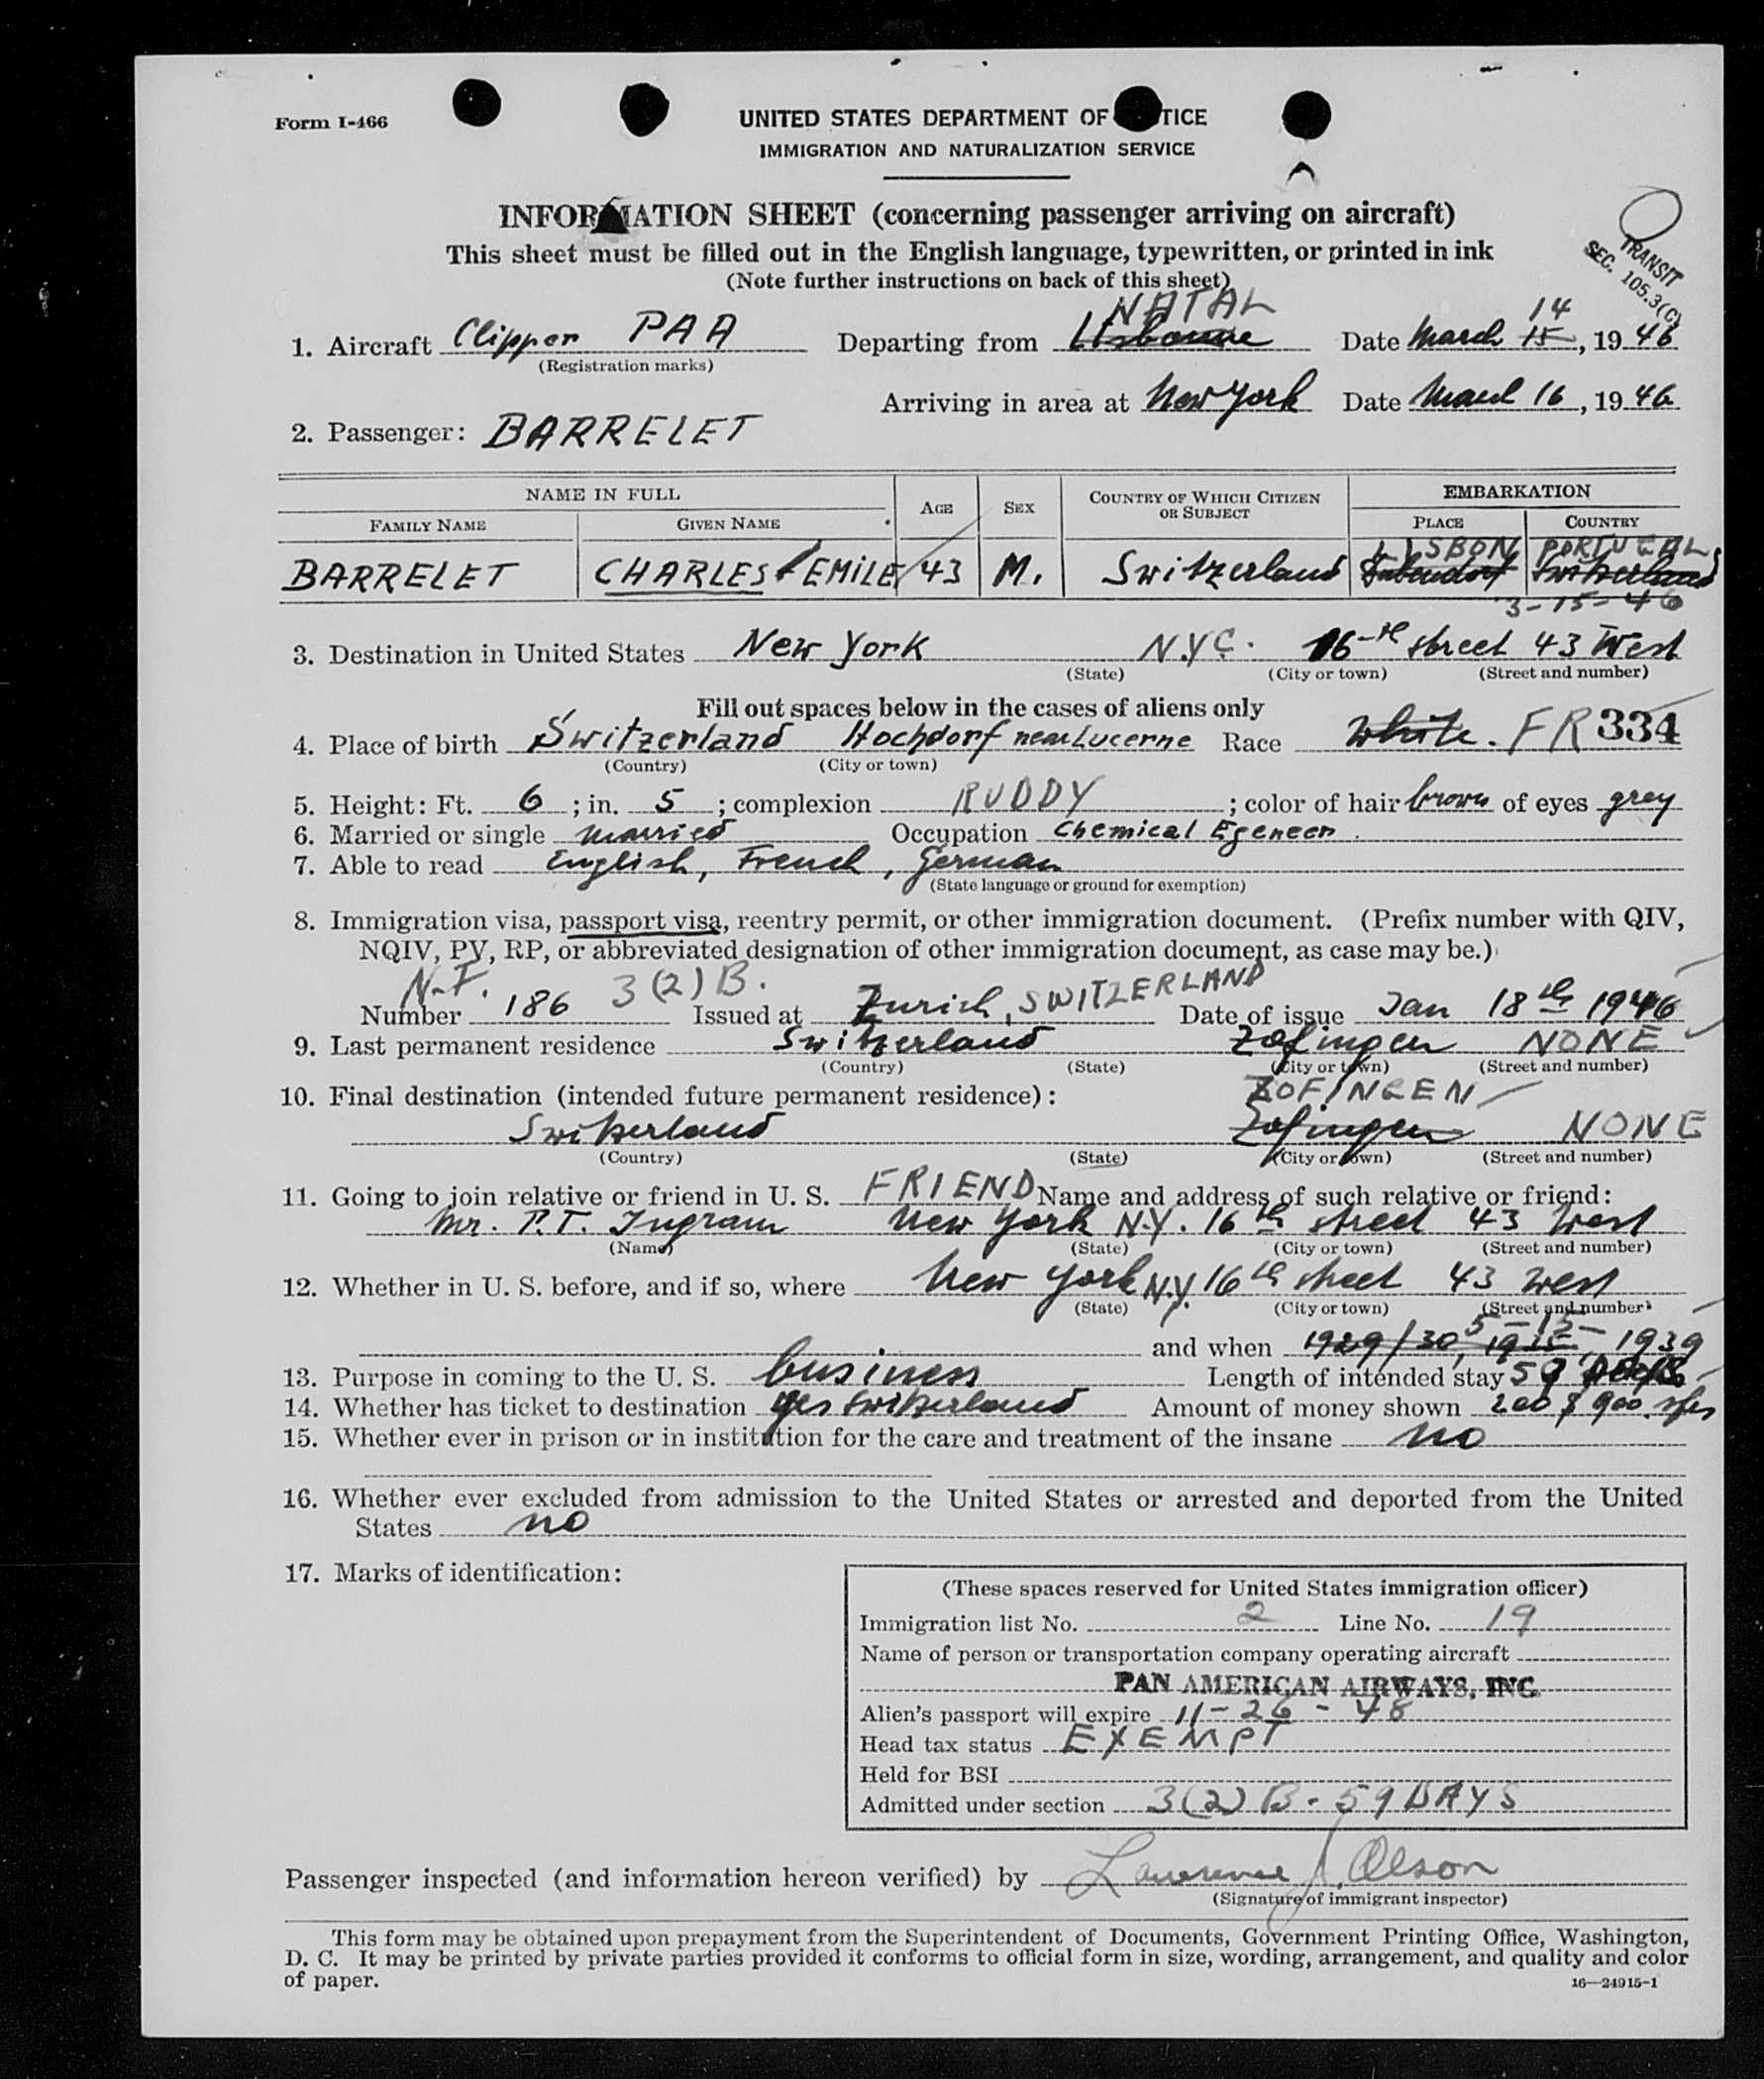 Form I-466
UNITED STATES DEPARTMENT OF TICE
IMMIGRATION AND NATURALIZATION SERVICE
INFORMATION SHEET (concerning passenger arriving on aircraft)
This sheet must be filled out in the English language, typewritten, or printed in ink
(Note further instructions on back of this sheet)
TRANSIT
SEC. 105.3(C)
NATAL 14
1. Aircraft Clipper PAA Departing from Lisbonne Date March 15, 1946
(Registration marks)
Arriving in area at New York Date March 16, 1946
2. Passenger: BARRELET
NAME IN FULL AGE SEX COUNTRY OF WHICH CITIZEN OR SUBJECT EMBARKATION
FAMILY NAME GIVEN NAME PLACE COUNTRY
LISBON PORTUGAL
BARRELET CHARLES EMILE 43 M. Switzerland Dubendorf Switzerland
3-15-46
3. Destination in United States New York N.Y.C. 16-th street 43 West
(State) (City or town) (Street and number)
Fill out spaces below in the cases of aliens only
4. Place of birth Switzerland Hochdorf near Lucerne Race White. FR 334
(Country) (City or town)
5. Height: Ft. 6; in. 5; complexion RUDDY; color of hair brown of eyes grey
6. Married or single married Occupation Chemical Egeneer.
7. Able to read English, French, German
(State language or ground for exemption)
8. Immigration visa, passport visa, reentry permit, or other immigration document. (Prefix number with QIV,
NQIV, PV, RP, or abbreviated designation of other immigration document, as case may be.)
Number 186 3(2)B. Issued at Zurich, SWITZERLAND Date of issue Jan 18th 1946
9. Last permanent residence Switzerland Zofingen NONE
(Country) (State) (City or town) (Street and number)
10. Final destination (intended future permanent residence): ZOFINGEN
Switzerland Zofingen NONE
(Country) (State) (City or town) (Street and number)
11. Going to join relative or friend in U. S. FRIEND Name and address of such relative or friend:
Mr. P.T. Ingram New York N.Y. 16th street 43 West
(Name) (State) (City or town) (Street and number)
12. Whether in U. S. before, and if so, where New York N.Y. 16th street 43 West
(State) (City or town) (Street and number)
5-15-
and when 1929/30, 1935, 1939
13. Purpose in coming to the U. S. business Length of intended stay 59
14. Whether has ticket to destination yes Switzerland Amount of money shown 200 $ 900. sfrs
15. Whether ever in prison or in institution for the care and treatment of the insane no
16. Whether ever excluded from admission to the United States or arrested and deported from the United
States no
17. Marks of identification:
(These spaces reserved for United States immigration officer)
Immigration list No. 2 Line No. 19
Name of person or transportation company operating aircraft
PAN AMERICAN AIRWAYS, INC.
Alien's passport will expire 11-26-48
Head tax status EXEMPT
Held for BSI
Admitted under section 3(2)B - 59 DAYS
Passenger inspected (and information hereon verified) by Lawrence J. Olson
(Signature of immigrant inspector)
This form may be obtained upon prepayment from the Superintendent of Documents, Government Printing Office, Washington,
D. C. It may be printed by private parties provided it conforms to official form in size, wording, arrangement, and quality and color
of paper. 16—24915-1